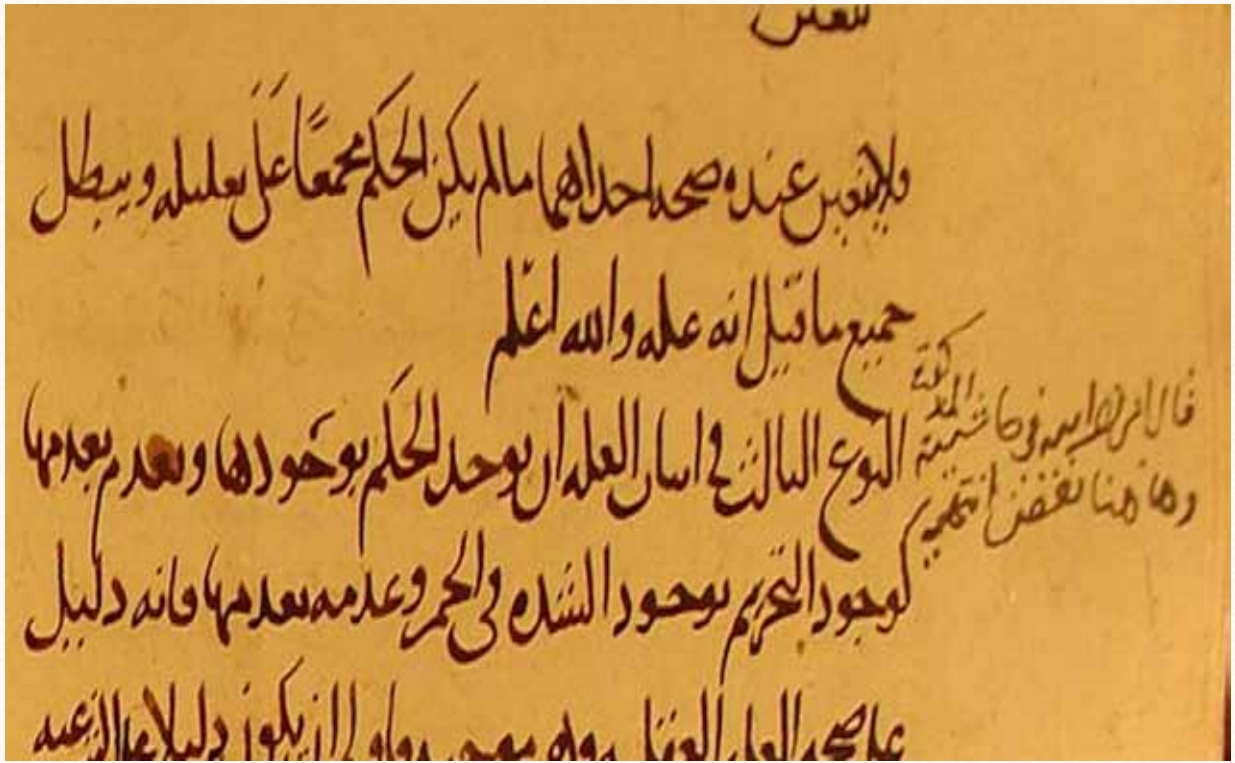 فلا يتعين عنده صحه احداهما ما لم يكن الحكم مجمعًا على تعليله ويبطل
جميع ما قيل انه عله والله اعلم
النوع الثالث في اثبات العله ان يوجد الحكم بوجودها ويعدم بعدمها
كوجود التحريم بوجود الشده في الخمر وعدمه بعدمها فانه دليل
على صحه العله العقليه وهي موجبه فاولى ان يكون دليلا على الشرعيه
قال في حاشية
وها هنا انتهى